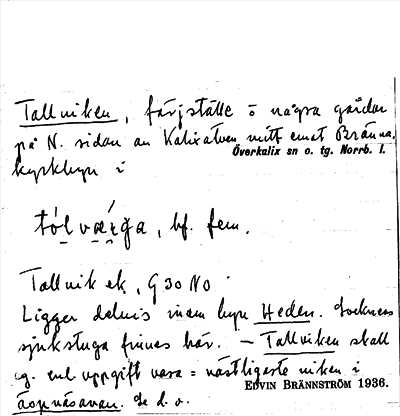 Tallviken, färjställe o några gårdar
på N. sidan av Kalixälven mitt emot Bränna,
Överkalix sn o. tg. Norrb. l.
kyrkbyn i
bf. fem.
Tallvik ek, G 30 NO
Ligger delvis inom byn Heden. Socknens
sjukstuga finnes här. – Tallviken skall
eg. enl uppgift vara = nästligaste viken i
Äspnäsavan. Se d. o.
EDVIN BRÄNNSTRÖM 1936.